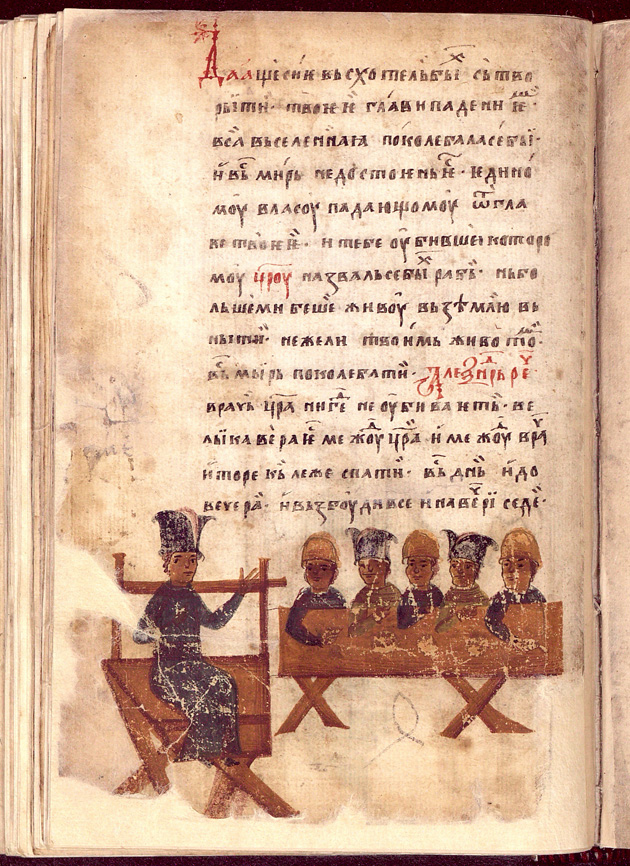 Да аще сиѥ въсхотелъ бых сътво
рыти · твоѥи глави падени ѥ ·
вса въселеннаꙗ поколебаласебы ·
и въ миръ недостоинь ѥ · ѥдино
моу власоу падающомоу ѿ гла
ве твоѥи · и тебе оубивше которо
моу цроу назвалъ себых рабъ · нь бо
льше ми беше живоу въ землю въ
ныти · нежели твоимь живото
въ мыръ поколебати · Алеѯнрь ре
врачь цра нигде не оубиваѥть · ве
лыка вера ѥ межоу цра и межоу вра
и леже спати · въ днь и до
вечера · и възбоудивсе и на вечерї седе ·